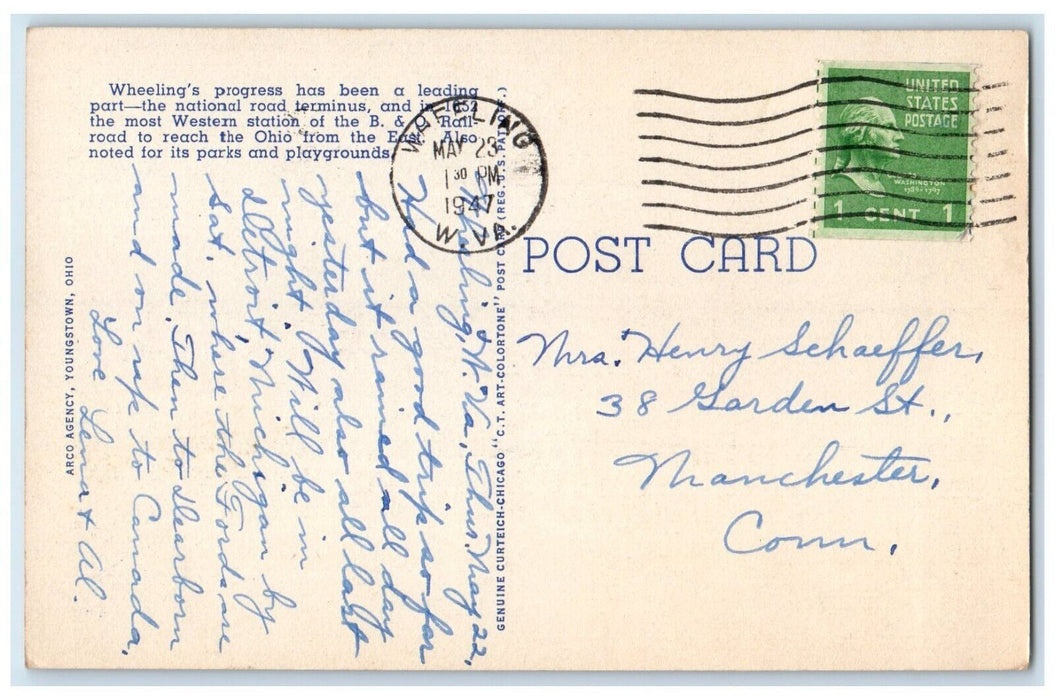 Wheeling's progress has been a leading
part—the national road terminus, and in 1852
the most Western station of the B. & O. Rail-
road to reach the Ohio from the East. Also
noted for its parks and playgrounds.
WHEELING
MAY 23
1 30 PM
1947
W. VA.
UNITED
STATES
POSTAGE
WASHINGTON
1789-1797
1 CENT 1
POST CARD
Wheeling, W. Va., Thus. May 22,
Had a good trip so far
but it rained all day
yesterday also all last
night. Will be in
Detroit, Michigan by
Sat. where the Fords are
made. Then to Dearborn
and on up to Canada,
Love Lena & Al.
Mrs. Henry Schaeffer,
38 Garden St.,
Manchester,
Conn.
GENUINE CURTEICH-CHICAGO "C.T. ART-COLORTONE" POST CARD (REG. U.S. PAT. OFF.)
ARCO AGENCY, YOUNGSTOWN, OHIO